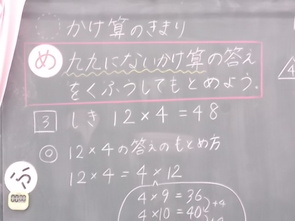 かけ算のきまり
め 九九にないかけ算の答え
をくふうしてもとめよう.
3 しき 12×4=48
◎ 12×4の答えのもとめ方
12×4=4×12
4×9=36
4×10=40
+4